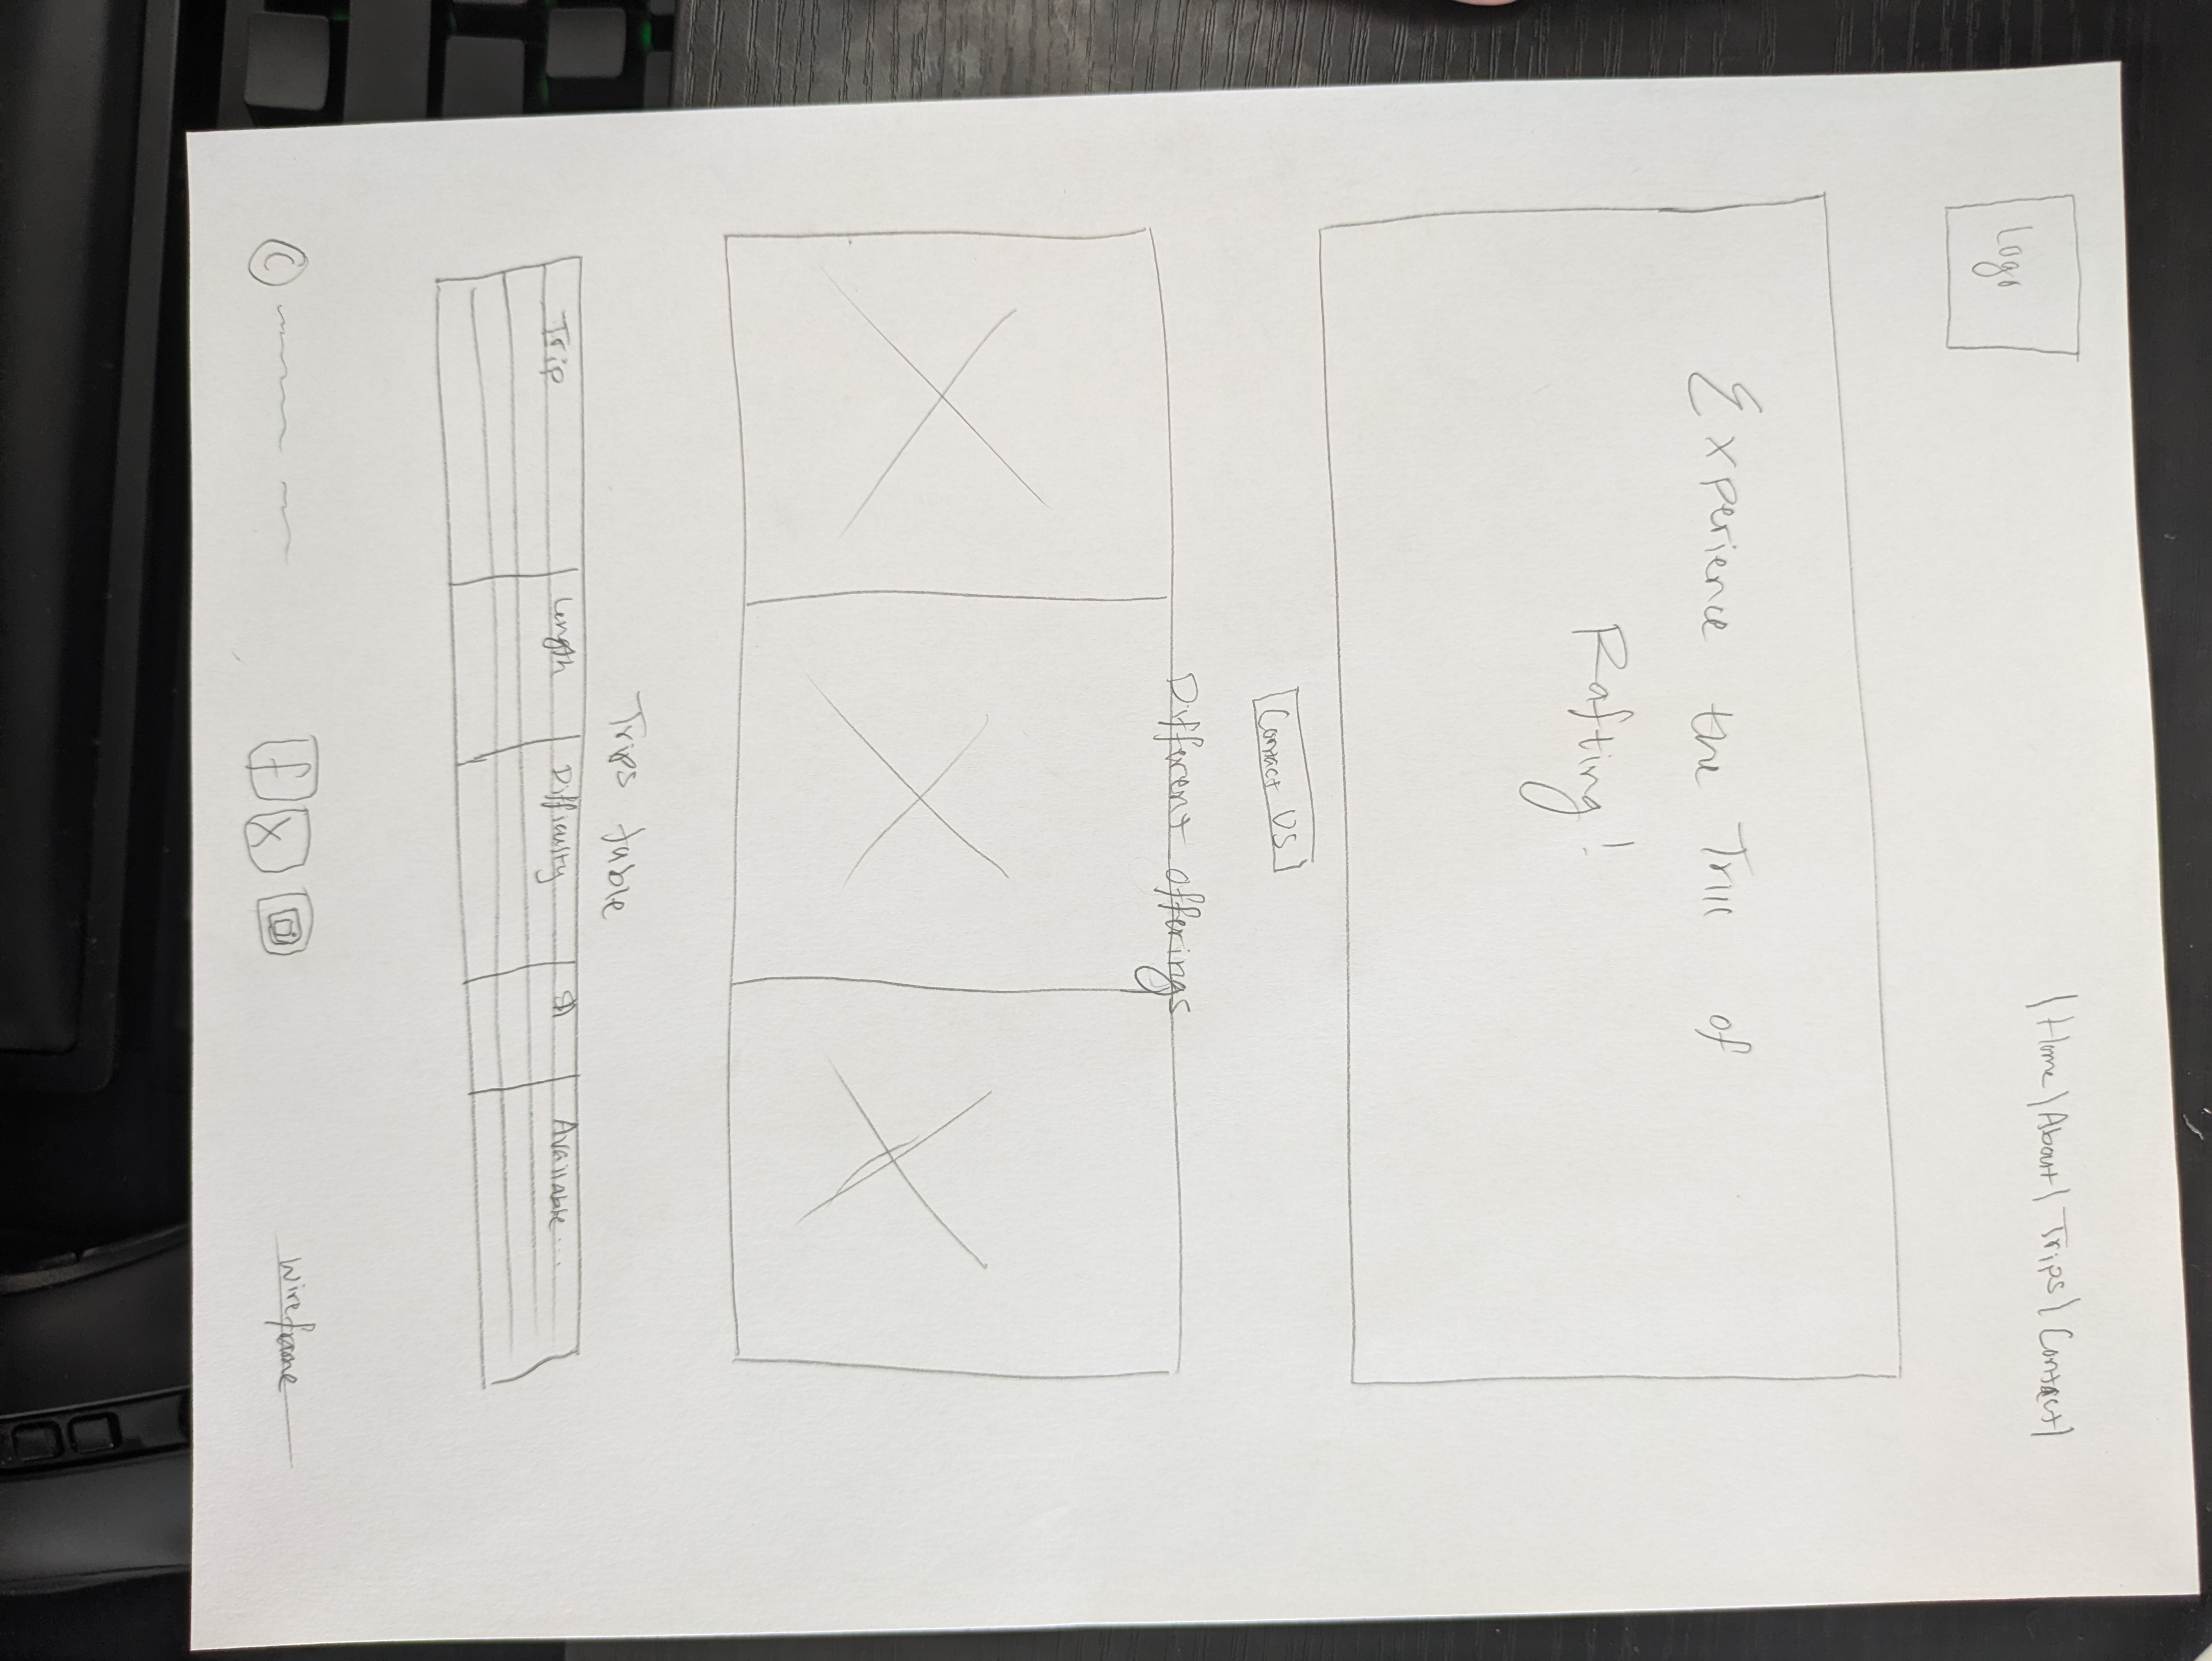 Logo
|Home|About|Trips|Contact|
Experience the Trill of
Rafting!
Contact US
Different offerings
Trips table
Trip Length Difficulty Available....
©
f X
Wireframe